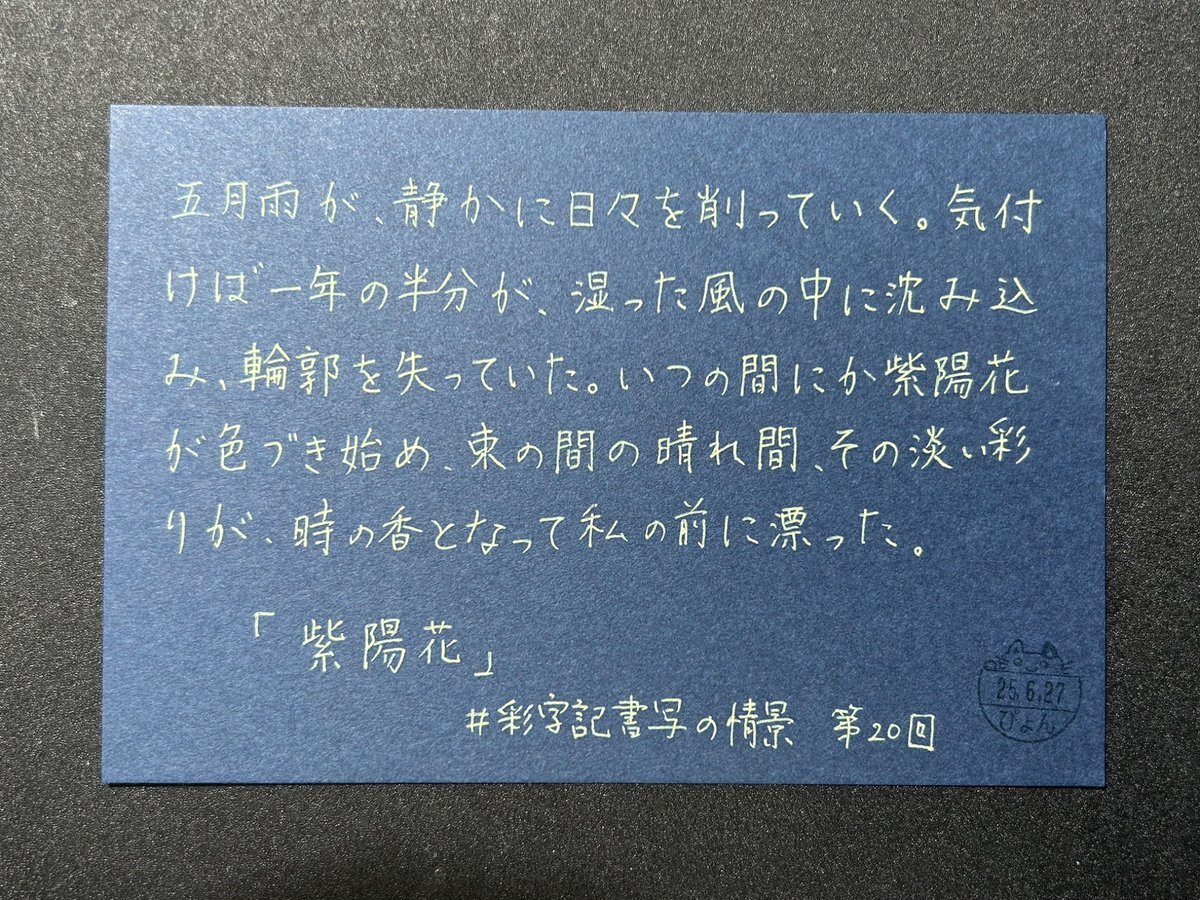 五月雨が、静かに日々を削っていく。気付
けば一年の半分が、湿った風の中に沈み込
み、輪郭を失っていた。いつの間にか紫陽花
が色づき始め、束の間の晴れ間、その淡い彩
りが、時の香となって私の前に漂った。
「紫陽花」
#彩字記書写の情景 第20回
25.6.27
ぴょん